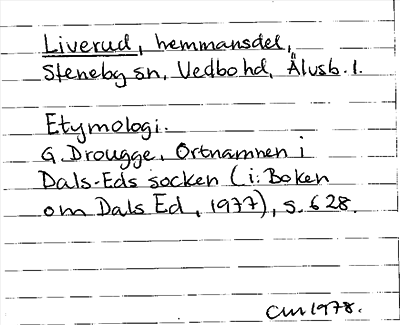 Liverud, hemmansdel,
Steneby sn, Vedbo hd, Älvsb. l.
Etymologi.
G. Drougge, Ortnamnen i
Dals-Eds socken (i: Boken
om Dals Ed, 1977), s. 628.
CM 1978.